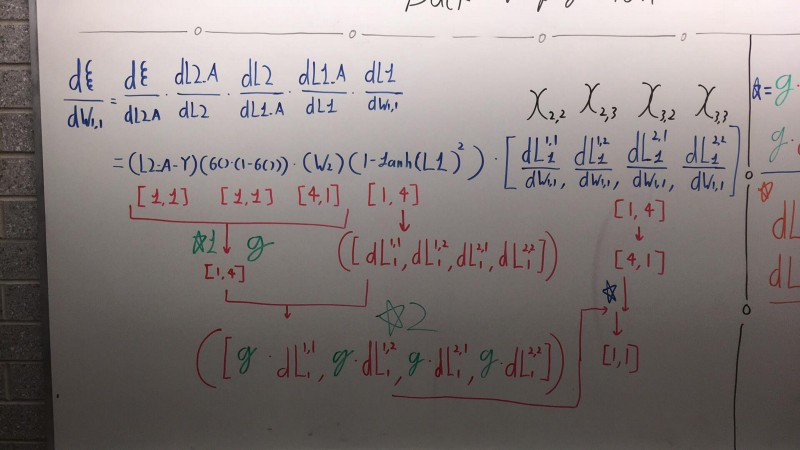 dξ/dW₁,₁ = dξ/dL2.A · dL2.A/dL2 · dL2/dL1.A · dL1.A/dL1 · dL1/dW₁,₁
X₂,₂ X₂,₃ X₃,₂ X₃,₃
= (L2.A-Y)(6()·(1-6())) · (W₂)(1-tanh(L1)²) · [dL₁^1,1/dW₁,₁, dL₁^1,2/dW₁,₁, dL₁^2,1/dW₁,₁, dL₁^2,2/dW₁,₁]
[1,1] [1,1] [4,1] [1,4] [1,4]
☆1 g ([dL₁^1,1, dL₁^1,2, dL₁^2,1, dL₁^2,2]) [4,1]
[1,4]
☆
☆2
([g · dL₁^1,1, g · dL₁^1,2, g · dL₁^2,1, g · dL₁^2,2]) [1,1]
☆= g ·
g ·
☆
dL
dL